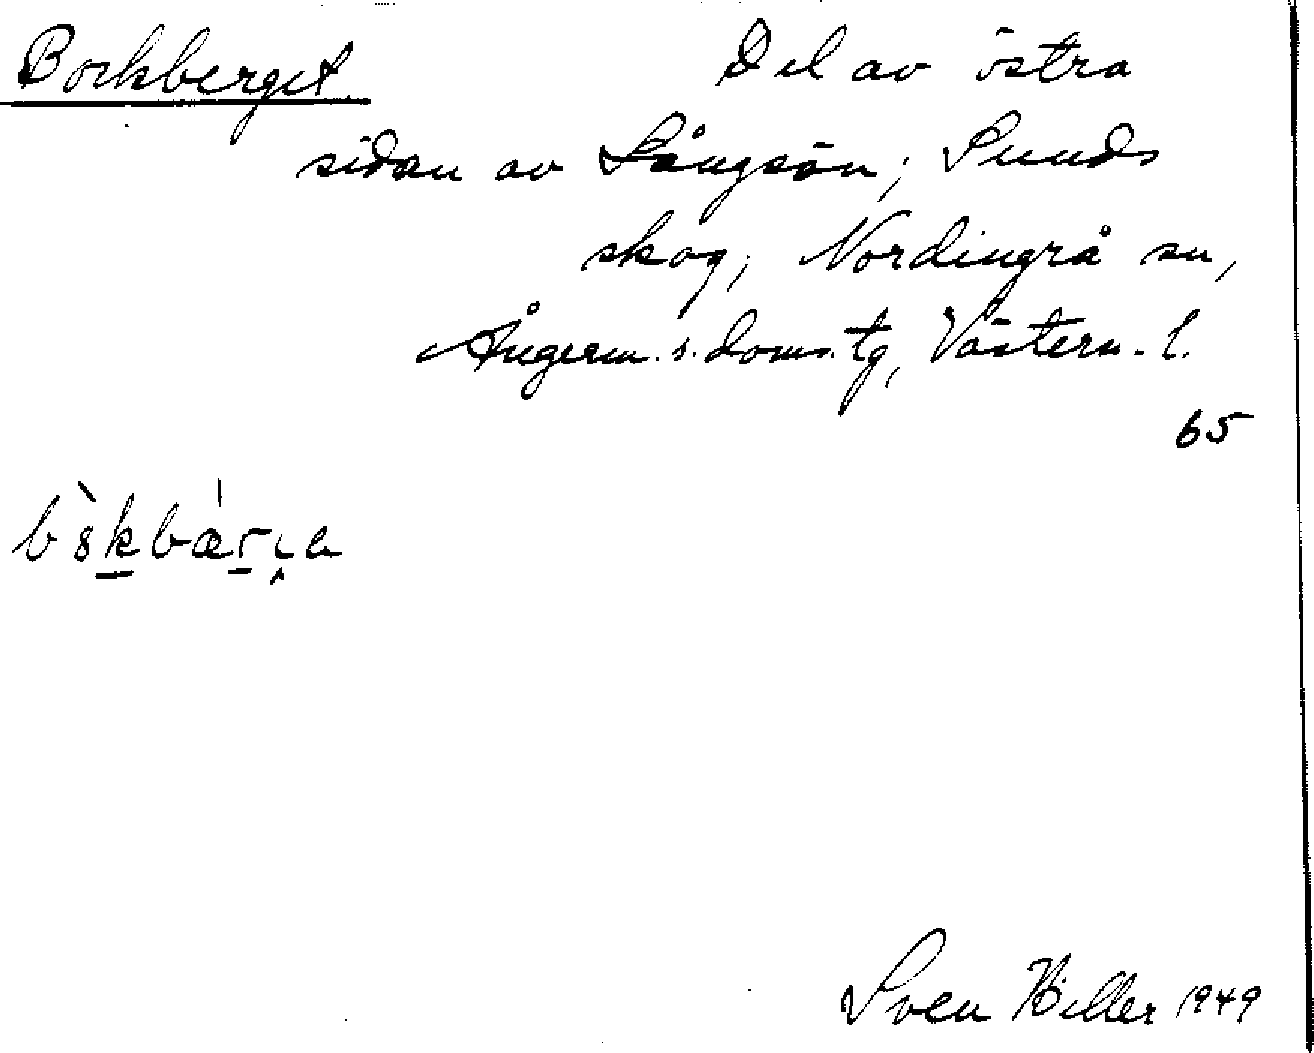 Bockberget Del av östra
sidan av Långsön, Sunds
skog, Nordingrå sn,
Ångerm. s. doms. tg, Västern. l.
65
Sven Hiller 1949